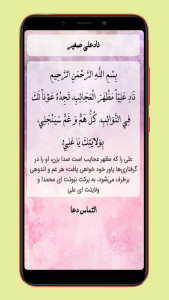 نادعلی صغیر
بِسْمِ اللَّهِ الرَّحْمَنِ الرَّحِيمِ
نَادِ عَلِيّاً مَظْهَرَ الْعَجَائِبِ، تَجِدْهُ عَوْناً لَكَ
فِي النَّوَائِبِ، كُلُّ هَمٍّ وَ غَمٍّ سَيَنْجَلِي،
بِوَلَايَتِكَ يَا عَلِيُّ
علی را که مظهر عجایب است صدا بزن، او را در
گرفتاری‌ها یاور خود خواهی یافت؛ هر غم و اندوهی
برطرف می‌شود، به برکت نبوتت ای محمد! و
ولایتت ای علی
التماس دعا